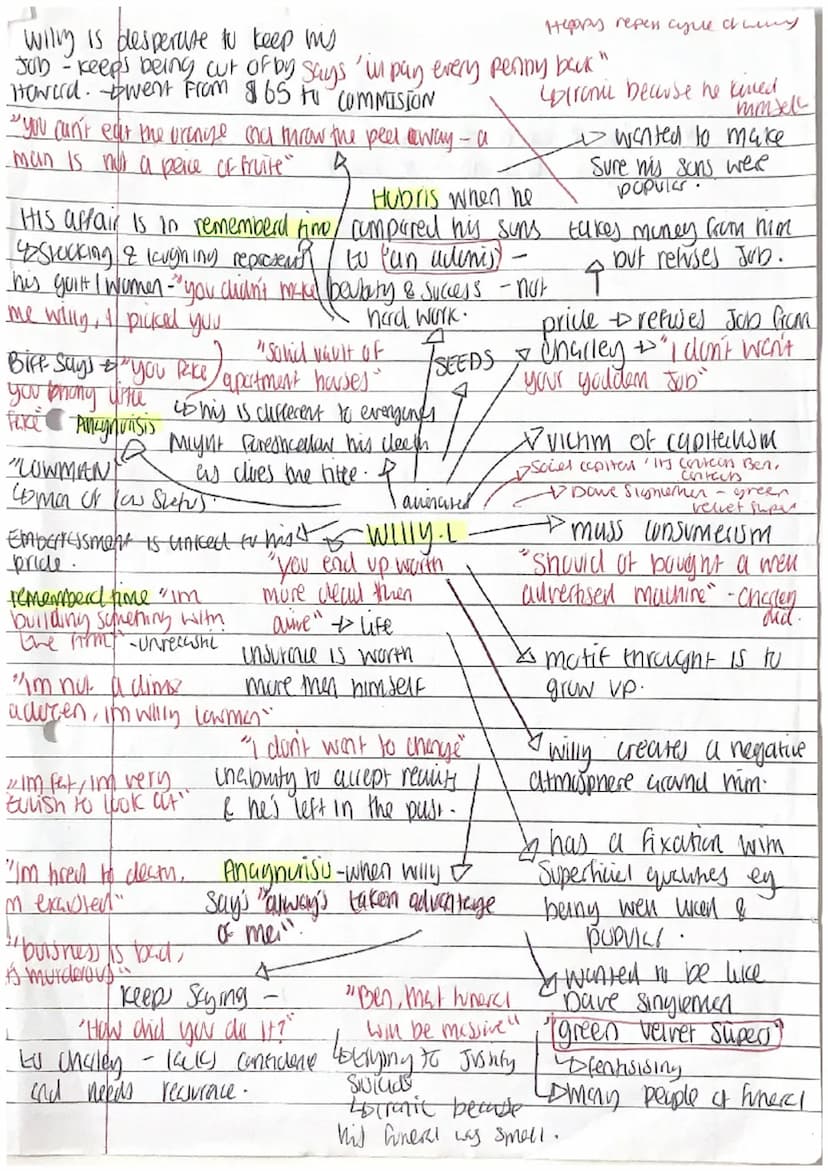 Willy is desperate to keep his
Job - keeps being cut of by
Howard. → went from $65 to commision
says "i'll pay every penny back"
↳ ironic because he killed
himself
"you can't eat the orange and throw the peel away - a
man is not a peice of fruite"
wanted to make
sure his sons were
populer.
Hubris when he
compared his sons
to "an adonis" -
beutaty & success - not
hard work.
His affair is in rememberd time
↳ Stocking & laughing represent
his guilt / women - "you didn't make
me willy, I picked you
takes money from him
but refuses Job.
pride → refuses Job from
charley → "I don't want
your goddem Job"
SEEDS
Biff says → "you fake
you phony little
fake"
Anagnorisis
"Solid vault of
apartment houses"
↳ this is different to everyone
might foreshadow his death
as does the title.
"LOWMAN"
↳ man of low status.
victim of capitalism
Social capital
Ben,
contacts
Dave Signlemen - green
velvet slipers
Willy.L
mass consumerism
"should of bought a well
advertised machine" - Charley
did.
Embaressment is linked to his
pride.
rememberd time "im
building something with
the firm" - unrealistic
"you end up worth
more dead then
alive" → life
insurance is worth
more then himself
motif throught is to
grow up.
"Im not a dime
adozen, im willy lowmen"
"I don't want to change"
inability to accept reality
& he's left in the past.
willy creates a negative
atmosphere around him.
"Im fat, im very
foolish to look at"
has a fixation with
Superficial qualities eg
being well liked &
populer.
"Im tired to death,
m exausted"
Anagnorisis - when willy
says "always taken advantage
of me!".
"buisness is bad,
ts murderous"
wanted to be like
Dave singlemen
"green velvet slipers"
↳ fantisising
↳ many people at funeral
Keeps saying -
"How did you do it?"
to charley - lacks confidence
and needs
"Ben, that funeral
will be massive"
↳ trying to Justify
suicide
↳ ironic because
his funeral was small.